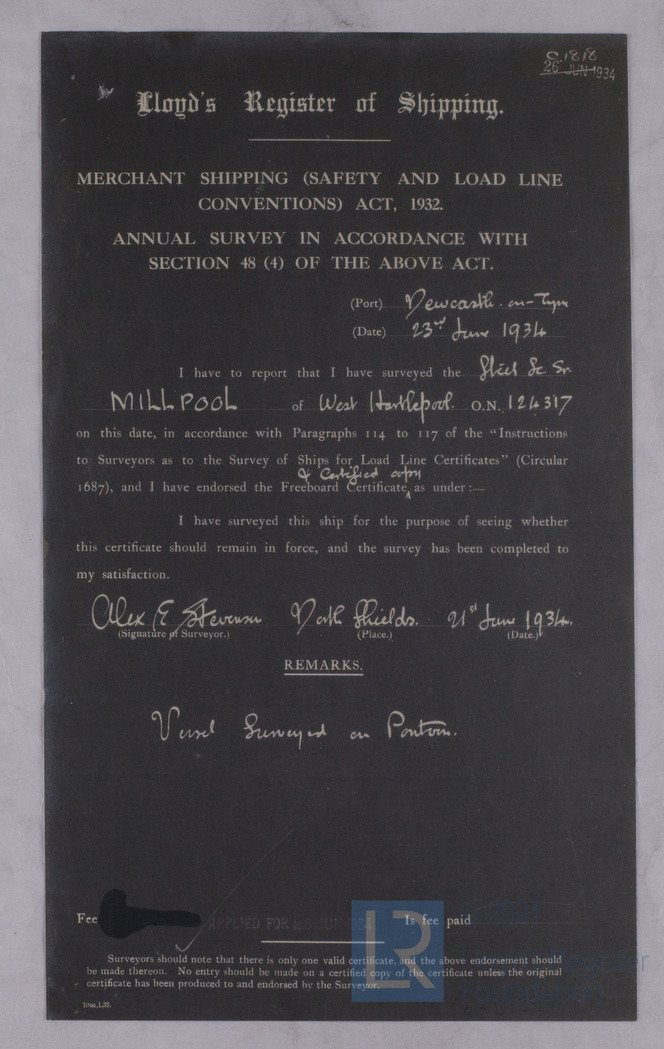 C.1818
26 JUN 1934
Lloyd's Register of Shipping.
MERCHANT SHIPPING (SAFETY AND LOAD LINE
CONVENTIONS) ACT, 1932.
ANNUAL SURVEY IN ACCORDANCE WITH
SECTION 48 (4) OF THE ABOVE ACT.
(Port) Newcastle-on-Tyne
(Date) 23rd June 1934
I have to report that I have surveyed the Steel Sc Sr
MILLPOOL of West Hartlepool. O.N. 124317
on this date, in accordance with Paragraphs 114 to 117 of the "Instructions
to Surveyors as to the Survey of Ships for Load Line Certificates" (Circular
& Certified copy
1687), and I have endorsed the Freeboard Certificate ^ as under:—
I have surveyed this ship for the purpose of seeing whether
this certificate should remain in force, and the survey has been completed to
my satisfaction.
Alex E Stevenson North Shields. 21st June 1934.
(Signature of Surveyor.) (Place.) (Date.)
REMARKS.
Vessel Surveyed on Pontoon.
Fee APPLIED FOR 26 JUN 1934 Is fee paid
LR
Surveyors should note that there is only one valid certificate, and the above endorsement should
be made thereon. No entry should be made on a certified copy of the certificate unless the original
certificate has been produced to and endorsed by the Surveyor.